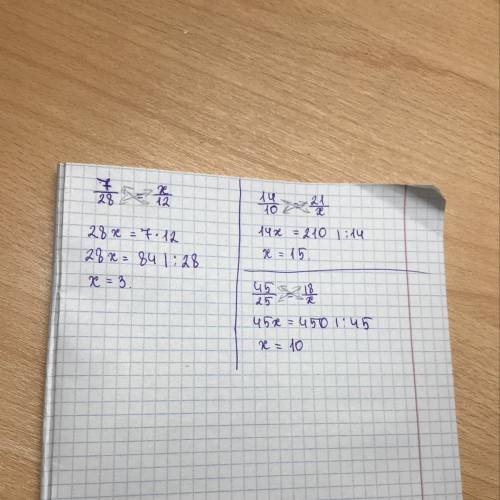 7/28 = x/12
28x = 7·12
28x = 84 | :28
x = 3.
14/10 = 21/x
14x = 210 | :14
x = 15.
45/25 = 18/x
45x = 450 | :45
x = 10